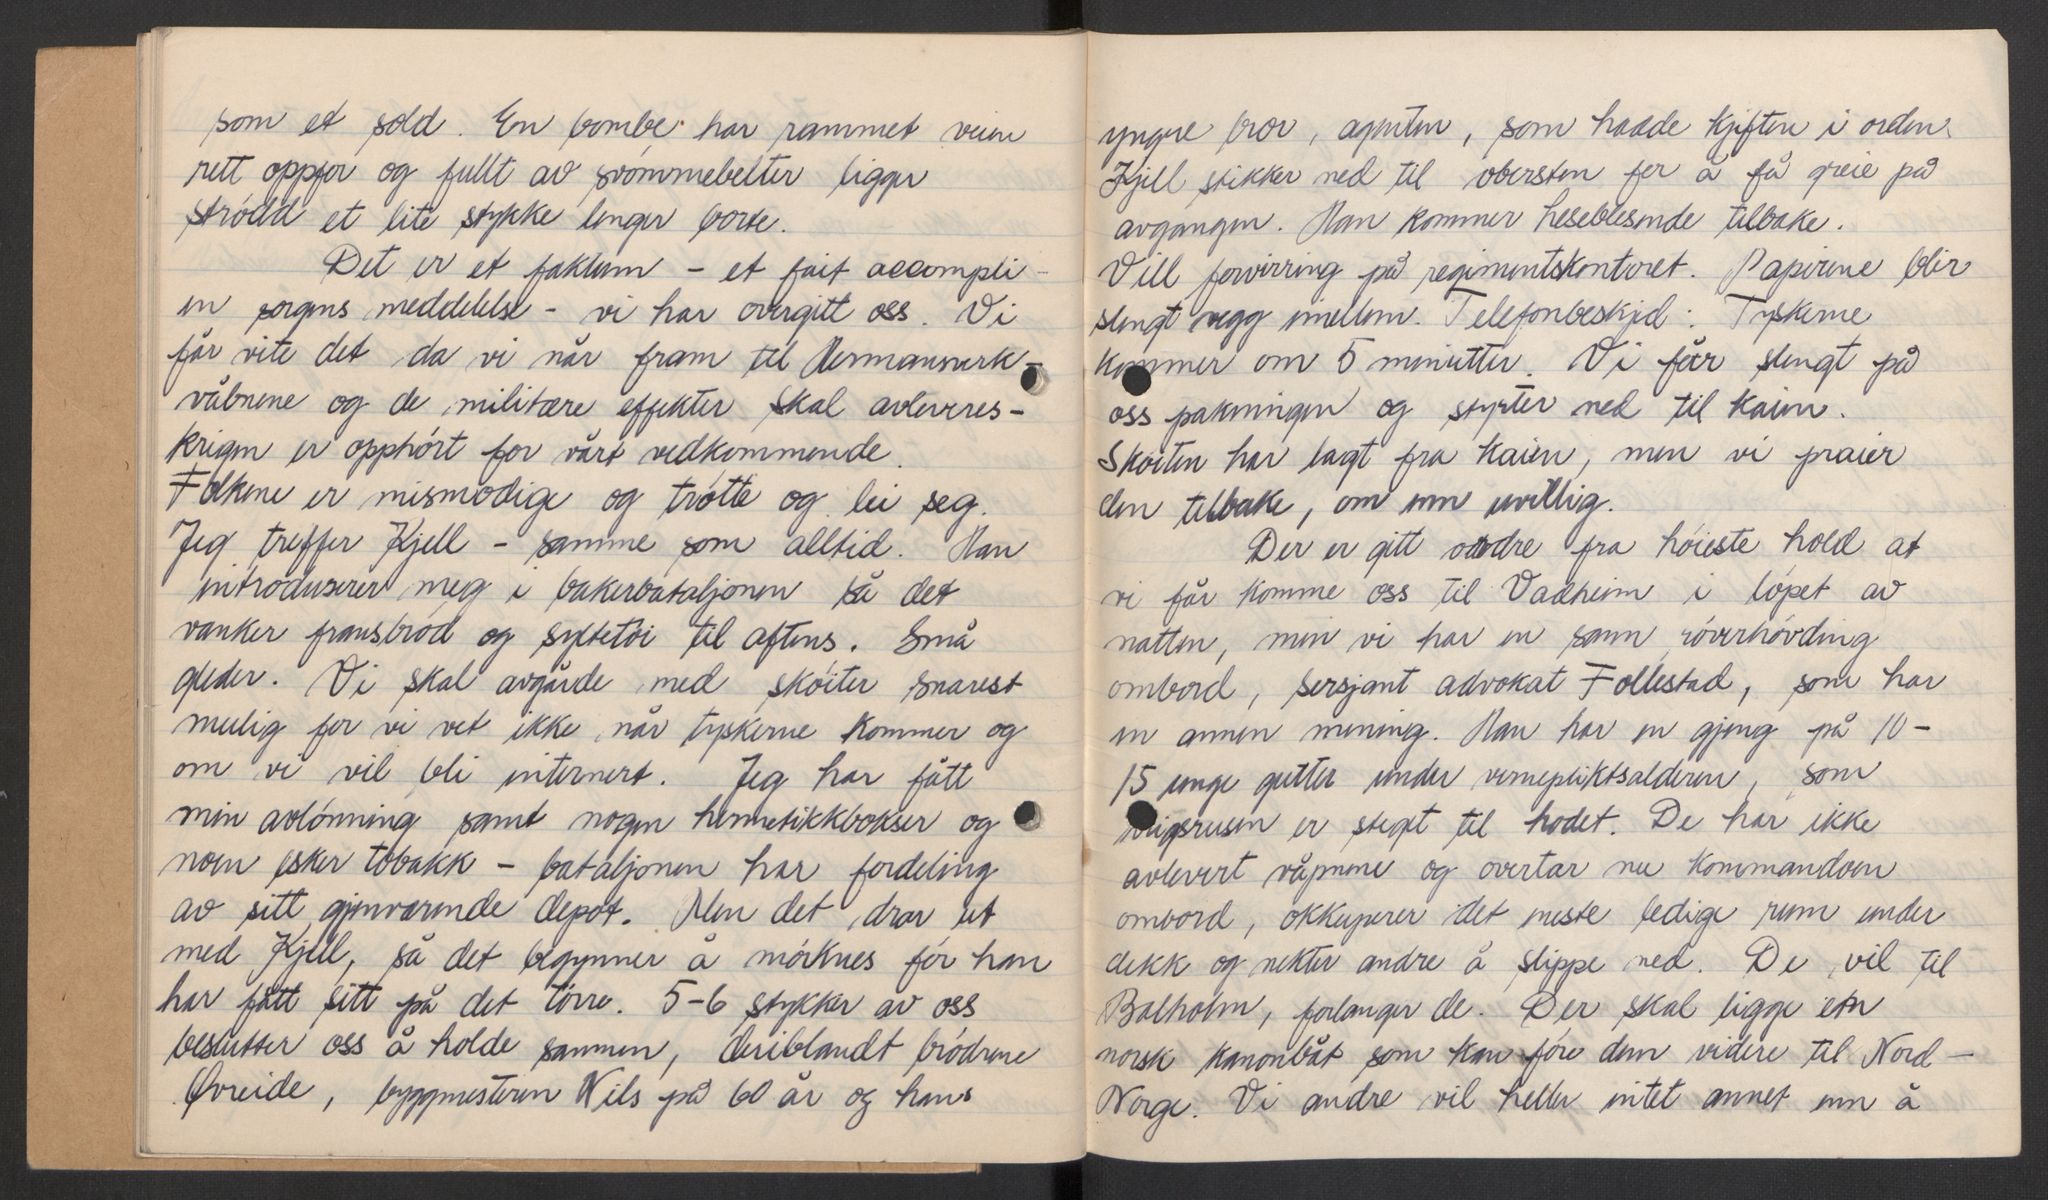 som et sold. En bombe har rammet veien
rett oppfor og fullt av svømmebelter ligger
strødd et lite stykke lenger borte.
Det er et faktum - et fait accompli -
en sorgens meddelelse - vi har overgitt oss. Vi
får vite det da vi når fram til Hermansverk -
våbnene og de militære effekter skal avleveres -
krigen er opphørt for vårt vedkommende.
Folkene er mismodige og trøtte og lei seg.
Jeg treffer Kjell - samme som alltid. Han
introduserer meg i bakerbataljonen så det
vanker fransbrød og syltetøi til aftens. Små
gleder. Vi skal avgårde med skøiter snarest
mulig for vi vet ikke når tyskerne kommer og
om vi vil bli internert. Jeg har fått
min avlønning samt nogen hermetikkbokser og
noen esker tobakk - bataljonen har fordeling
av sitt gjenværende depot. Men det drar ut
med Kjell, så det begynner å mørknes før han
har fått sitt på det tørre. 5-6 stykker av oss
beslutter oss å holde sammen, deriblandt brødrene
Øvreide, byggmesteren Nils på 60 år og hans
yngre bror, agenten, som hadde kjeften i orden.
Kjell stikker ned til obersten for å få greie på
avgangen. Han kommer heseblesende tilbake.
Vill forvirring på regimentskontoret. Papirene blir
slengt vegg imellem. Telefonbeskjed: Tyskerne
kommer om 5 minutter. Vi får slengt på
oss pakningen og styrter ned til kaien.
Skøiten har lagt fra kaien, men vi praier
den tilbake, om enn uvillig.
Der er gitt ordre fra høieste hold at
vi får komme oss til Vadheim i løpet av
natten, men vi har en sann røverhøvding
ombord, sersjant advokat Follestad, som har
en annen mening. Han har en gjeng på 10-
15 unge gutter under vernepliktsalderen, som
krigsrusen er steget til hodet. De har ikke
avlevert våpnene og overtar nu kommandoen
ombord, okkuperer det meste ledige rum under
dekk og nekter andre å slippe ned. De vil til
Balholm, forlanger de. Der skal ligge en
norsk kanonbåt som kan føre dem videre til Nord-
Norge. Vi andre vil heller intet annet enn å